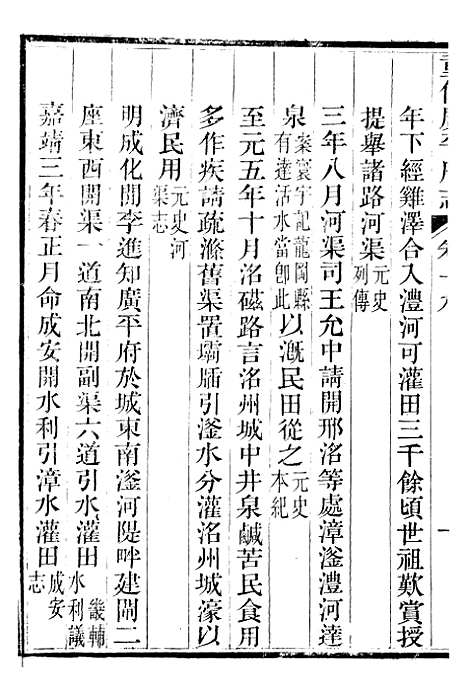 重修廣平府志 卷十九 一
年下經雞澤合入澧河可灌田三千餘頃世祖歎賞授
提舉諸路河渠元史列傳
三年八月河渠司王允中請開邢洺等處漳滏澧河達
泉案寰宇記龍岡縣有達活水當卽此以漑民田從之元史本紀
至元五年十月洺磁路言洺州城中井泉鹹苦民食用
多作疾請疏滌舊渠置壩牐引滏水分灌洺州城濠以
濟民用元史河渠志
明成化間李進知廣平府於城東南滏河隄畔建閘二
座東西開渠一道南北開副渠六道引水灌田畿輔水利議
嘉靖三年春正月命成安開水利引漳水灌田成安志